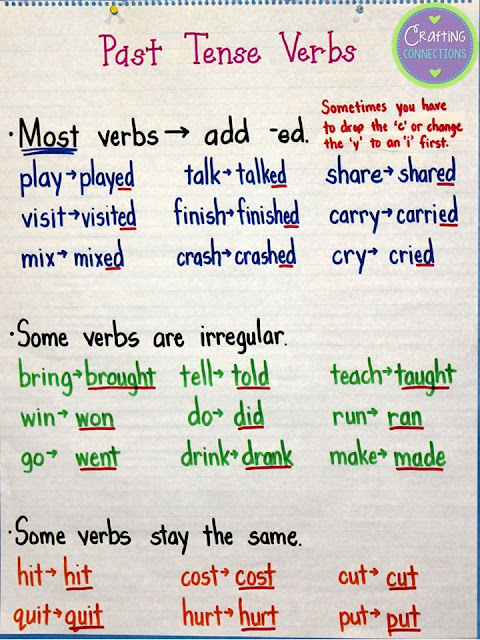 Past Tense Verbs
Crafting
CONNECTIONS
Sometimes you have
to drop the 'e' or change
the 'y' to an 'i' first.
·Most verbs→ add -ed.
play→played talk→talked share→shared
visit→visited finish→finished carry→carried
mix→mixed crash→crashed cry→cried
·Some verbs are irregular.
bring→brought tell→told teach→taught
win→won do→did run→ran
go→ went drink→drank make→made
·Some verbs stay the same.
hit→hit cost→cost cut→cut
quit→quit hurt→hurt put→put